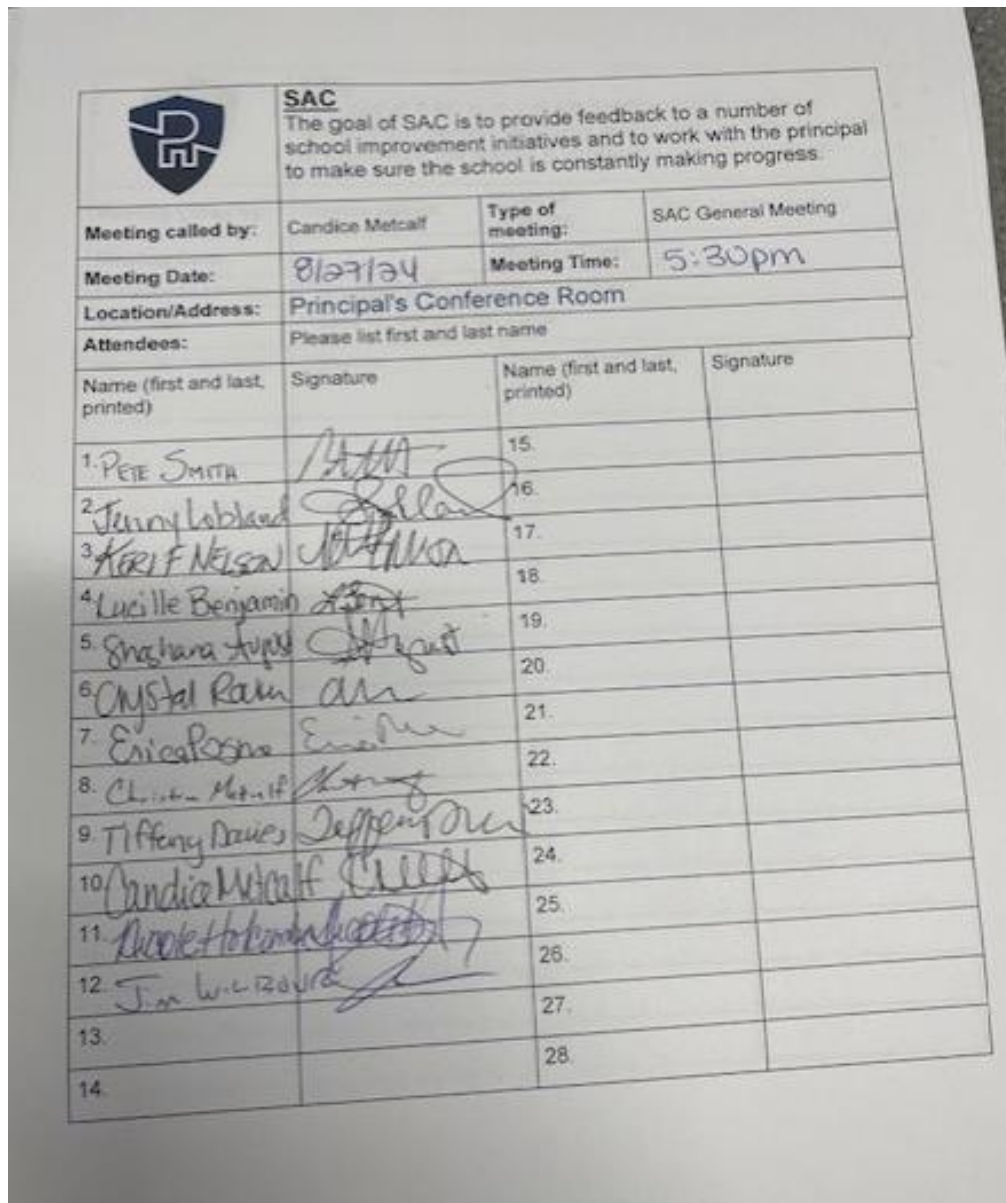 SAC
The goal of SAC is to provide feedback to a number of
school improvement initiatives and to work with the principal
to make sure the school is constantly making progress.
Meeting called by: Candice Metcalf Type of meeting: SAC General Meeting
Meeting Date: 8/27/24 Meeting Time: 5:30pm
Location/Address: Principal's Conference Room
Attendees: Please list first and last name
Name (first and last, printed) Signature Name (first and last, printed) Signature
1. PETE SMITH 15.
2. Jenny Lobland 16.
3. KERI F NELSON 17.
4. Lucille Benjamin 18.
5. Shashana August 19.
6. Crystal 20.
7. Erica 21.
8. Metcalf 22.
9. Tiffany Davies 23.
10. Candice Metcalf 24.
11. Nicole 25.
12. Jim 26.
13. 27.
14. 28.